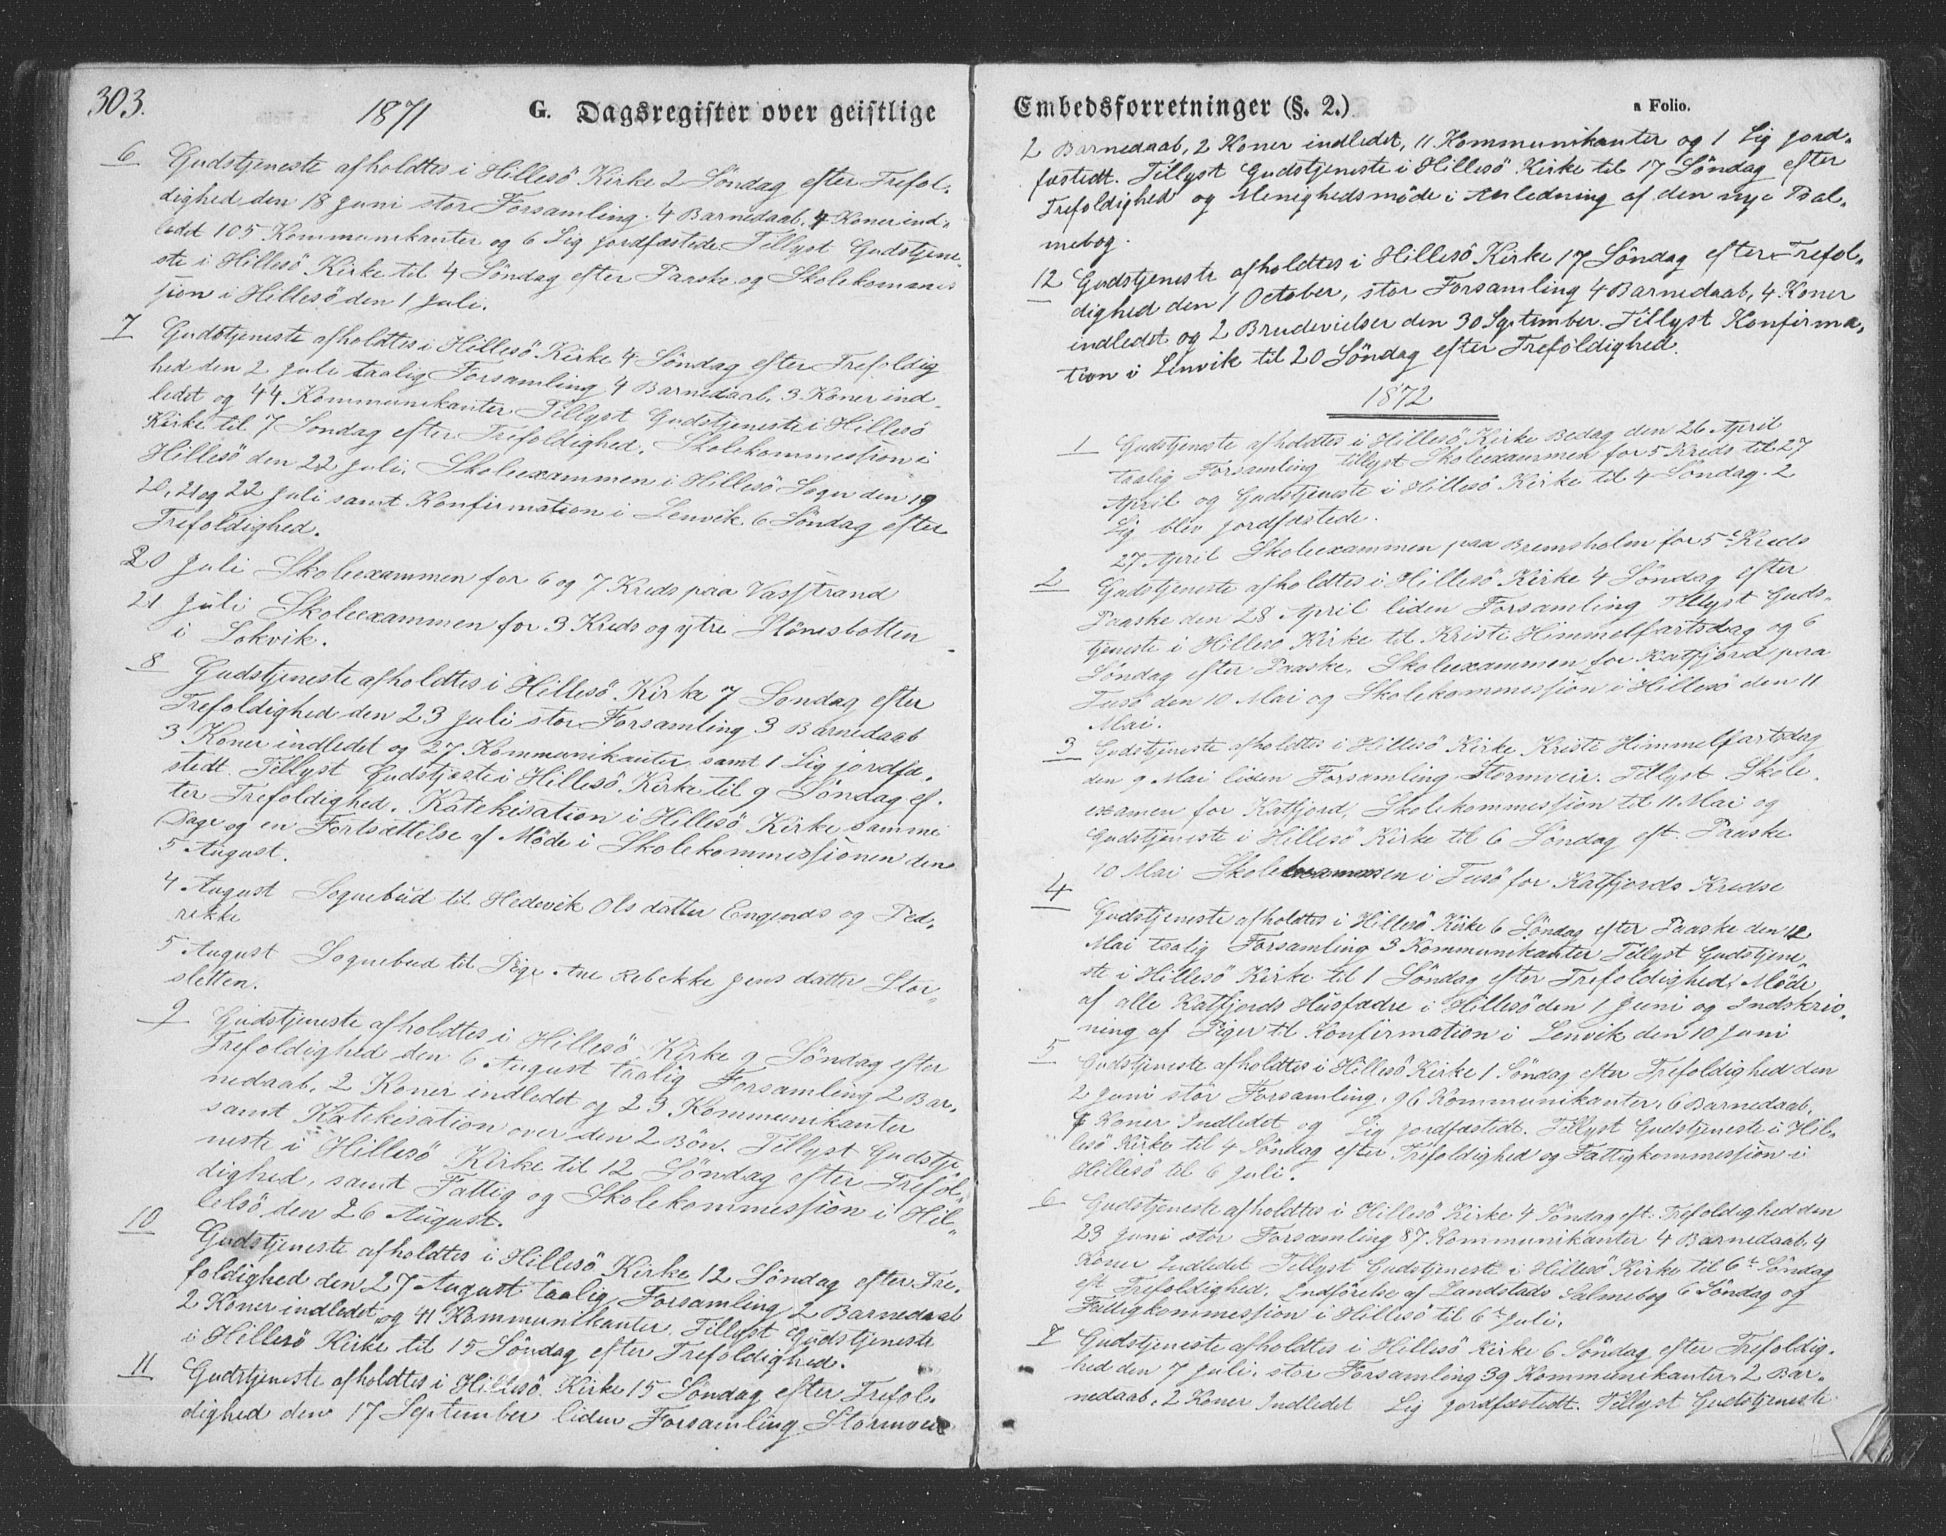 303.
1871
G. Dagsregister over geistlige
6 Gudstjeneste afholdtes i Hillesö Kirke 2 Söndag efter Trefol-
dighed den 18 Juni stor Forsamling. 4 Barnedaab, 4 Koner ind-
ledet 105 Kommunikanter og 6 Lig jordfæstede Tillyst Gudstjene-
ste i Hillesö Kirke til 4 Söndag efter Paaske og Skolekomis
sjon i Hillesö den 1 Juli.
7 Gudstjeneste afholdtes i Hillesö Kirke 4 Söndag efter Trefoldig
hed den 2 Juli taalig Forsamling 4 Barnedaab, 3 Koner ind-
ledet og 44 Kommunikanter Tillyst Gudstjeneste i Hillesö
Kirke til 7 Söndag efter Trefoldighed. Skolekommession i
Hillesö den 22 Juli, Skoleexammen i Hillesö Sogn den 19
20, 21 og 22 Juli samt Konfirmation i Lenvik 6 Söndag efter
Trefoldighed.
20 Juli Skoleexammen for 6 og 7 Kreds paa Vasstrand
21 Juli Skoleexammen for 3 Kreds og ytre Stönesbotten
i Lokvik.
8 Gudstjeneste afholdtes i Hillesö Kirke 7 Söndag efter
Trefoldighed den 23 Juli stor Forsamling 3 Barnedaab
3 Koner indledet og 27 Kommunikanter samt 1 Lig jordfæ-
stedt. Tillyst Gudstjeste i Hillesö Kirke til 9 Söndag ef-
ter Trefoldighed. Katekisation i Hillesö Kirke samme
Dage og en Fortsættelse af Möde i Skolekommessjonen den
5 August.
4 August Sognebud til Hedevik Olsdatter Engenes og Ped-
rikke
5 August Sognebud til Pige Ane Rebekke Jensdatter Stor-
sletten.
9 Gudstjeneste afholdtes i Hillesö Kirke 9 Söndag efter
Trefoldighed den 6 August taalig Forsamling 2 Bar-
nedaab, 2 Koner indledet og 23 Kommunikanter
samt Katekisation over den 2 Bön. Tillyst Gudstje-
neste i Hillesö Kirke til 12 Söndag efter Trefol-
dighed, samt Fattig og Skolekommessjon i Hil-
lelsö den 26 August.
10 Gudstjeneste afholdtes i Hillesö Kirke 12 Söndag efter Tre-
foldighed den 27 August taalig Forsamling 2 Barnedaab
2 Koner indledet og 41 Kommunikanter. Tillyst Gudstjeneste
i Hillesö Kirke til 15 Söndag efter Trefoldighed.
11 Gudstjeneste afholdtes i Hillesö Kirke 15 Söndag efter Trefol-
dighed den 17 September liden Forsamling Stormveir
Embedsforretninger (§. 2.)
a Folio.
2 Barnedaab, 2 Koner indledet, 11 Kommunikanter og 1 Lig jord-
fæstedt. Tillyst Gudstjeneste i Hillesö Kirke til 17 Söndag efter
Trefoldighed og Menighedsmöde i Anledning af den nye Psal-
mebog.
12 Gudstjeneste afholdtes i Hillesö Kirke 17 Söndag efter Trefol-
dighed den 1 October, stor Forsamling 4 Barnedaab, 4 Koner
indledet og 2 Brudevielser den 30 September. Tillyst Konfirma-
tion i Lenvik til 20 Söndag efter Trefoldighed.
1872
1 Gudstjeneste afholdtes i Hillesö Kirke Bedag den 26 April
taalig Forsamling tillyst Skoleexammen for 5 Kreds til 27
April og Gudstjeneste i Hillesö Kirke til 4 Söndag. 2
Lig blev jordfæstede.
27 April Skoleexammen paa Bremsholm for 5te Kreds
2 Gudstjeneste afholdtes i Hillesö Kirke 4 Söndag efter
Paaske den 28 April liden Forsamling Tillyst Guds-
tjeneste i Hillesö Kirke til Kristi Himmelfartsdag og 6
Söndag efter Paaske. Skoleexammen for Katfjord paa
Tusö den 10 Mai og Skolekommessjon i Hillesö den 11
Mai.
3 Gudstjeneste afholdtes i Hillesö Kirke Kristi Himmelfartsdag
den 9 Mai liden Forsamling Stormveir. Tillyst Skole-
examen for Katfjord, Skolekommessjon til 11 Mai og
Gudstjeneste i Hillesö Kirke til 6 Söndag eft. Paaske
10 Mai Skoleexammen i Tusö for Katfjords Kredse
4 Gudstjeneste afholdtes i Hillesö Kirke 6 Söndag efter Paaske den 12
Mai taalig Forsamling 3 Kommunikanter Tillyst Gudstjene-
ste i Hillesö Kirke til 1 Söndag efter Trefoldighed, Möde
af alle Katfjords Husfædre i Hillesö den 1 Juni og Indskriv-
ning af Piger til Konfirmation i Lenvik den 10 Juni
5 Gudstjeneste afholdtes i Hillesö Kirke 1 Söndag efter Trefoldighed den
2 Juni stor Forsamling, 96 Kommunikanter, 6 Barnedaab,
Koner Indledet og Lig jordfæstedt. Tillyst Gudstjeneste i Hil-
lesö Kirke til 4 Söndag efter Trefoldighed og Fattigkommessjon i
Hillesö til 6 Juli.
6 Gudstjeneste afholdtes i Hillesö Kirke 4 Söndag eft: Trefoldighed den
23 Juni stor Forsamling 87 Kommunikanter 4 Barnedaab, 4
Koner Indledet Tillyst Gudstjeneste i Hillesö Kirke til 6te Söndag
eft Trefoldighed. Indförelse af Landstads Salmebog 6 Söndag og
Fattigkommessjon i Hillesö til 6te Juli.
7 Gudstjeneste afholdtes i Hillesö Kirke 6 Söndag efter Trefoldig-
hed den 7 Juli, stor Forsamling 39 Kommunikanter, 2 Bar-
nedaab, 2 Koner Indledet Lig jordfæstedt. Tillyst Gudstjeneste